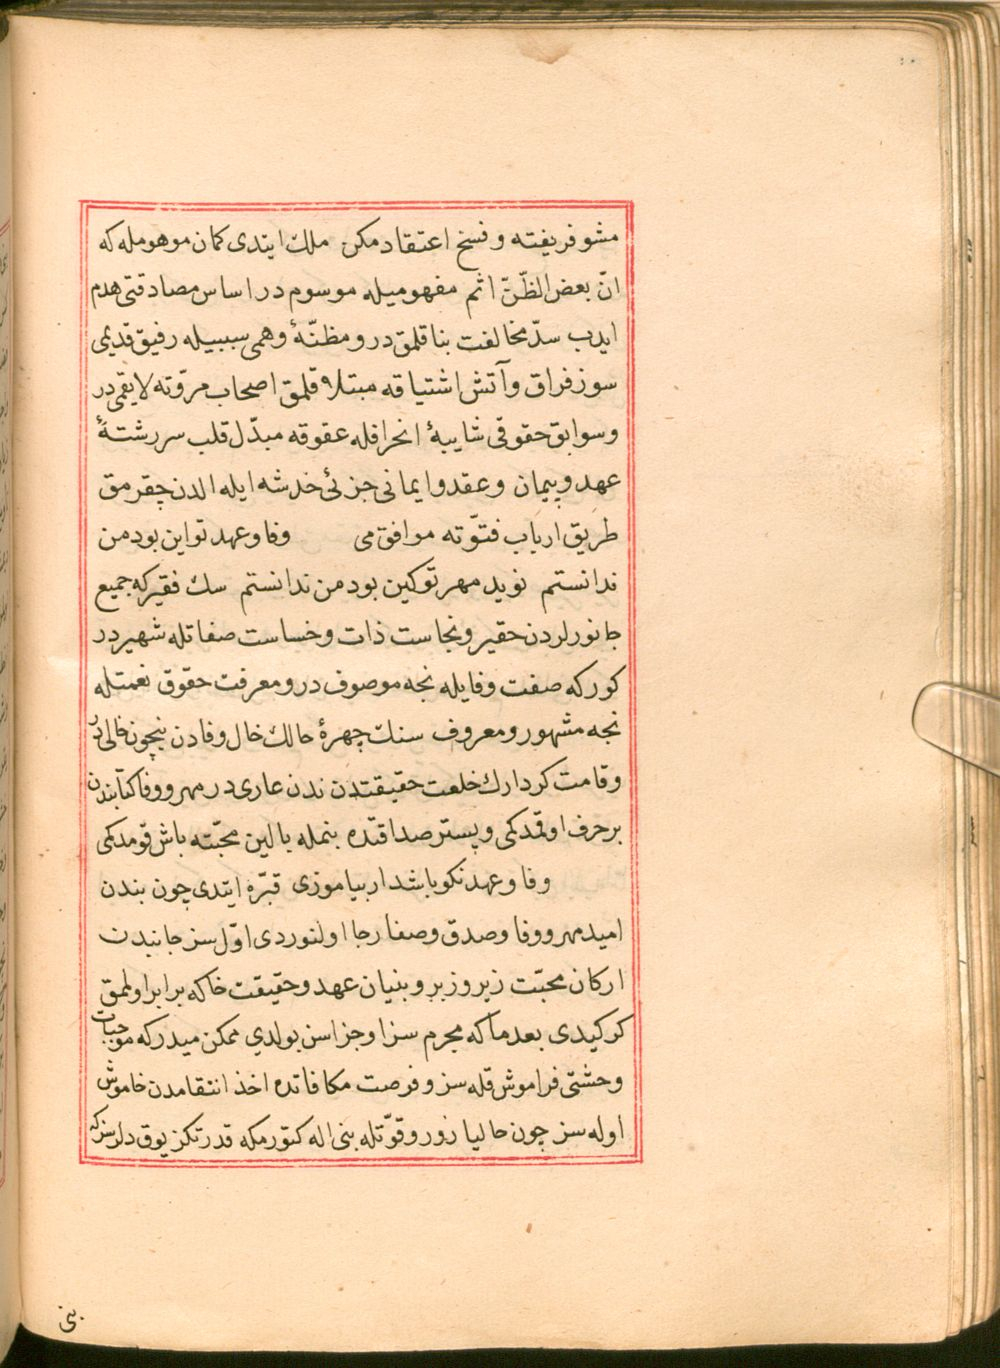 مشو فریفته و فسخ اعتقاد مکن ملك ایتدی کمان موهومله که
انّ بعض الظّنّ اثم مفهومیله موسوم در اساس مصادقتی هدم
ایدب سدّ مخالفت بنا قلمق در و مظنّهٔ وهمی سببیله رفیق قدیمی
سوز فراق و آتش اشتیاقه مبتلا قلمق اصحاب مروّته لایقمی در
و سوابق حقوقی شایبهٔ انحرافله عقوقه مبدّل قلب سررشتهٔ
عهد و پیمان و عقد و ایمانی جزئی خدشه ایله الدن چقرمق
طریق ارباب فتوّته موافق می وفا و عهد تو این بود من
ندانستم نوید مهر تو کین بود من ندانستم سك فقیر که جمیع
جانورلردن حقیر و نجاست ذات و خساست صفاتله شهیر در
کور که صفت وفایله نجه موصوف در و معرفت حقوق نعمتله
نجه مشهور و معروف سنك چهرهٔ حالك خال وفادن نیچون خالی در
و قامت کردارك خلعت حقیقتدن ندن عاری در مهر و وفا کتابندن
بر حرف اولمدکمی و پستر صداقتده بنمله بالین محبّته باش قومدکمی
وفا و عهد نکو باشد ار بیاموزی قبّره ایتدی چون بندن
امید مهر و وفا و صدق و صفا رجا اولنوردی اوّل سز جانبدن
ارکان محبّت زیر و زبر و بنیان عهد و حقیقت خاکه برابر اولمق
کرکیدی بعدما که مجرم سزا و جزاسن بولدی ممکن میدر که موجبات
وحشتی فراموش قله سز و فرصت مکافاتده اخذ انتقامدن خاموش
اوله سز چون حالیا زور و قوّتله بنی اله کتورمکه قدرتکز یوق دلرسز که
بنی